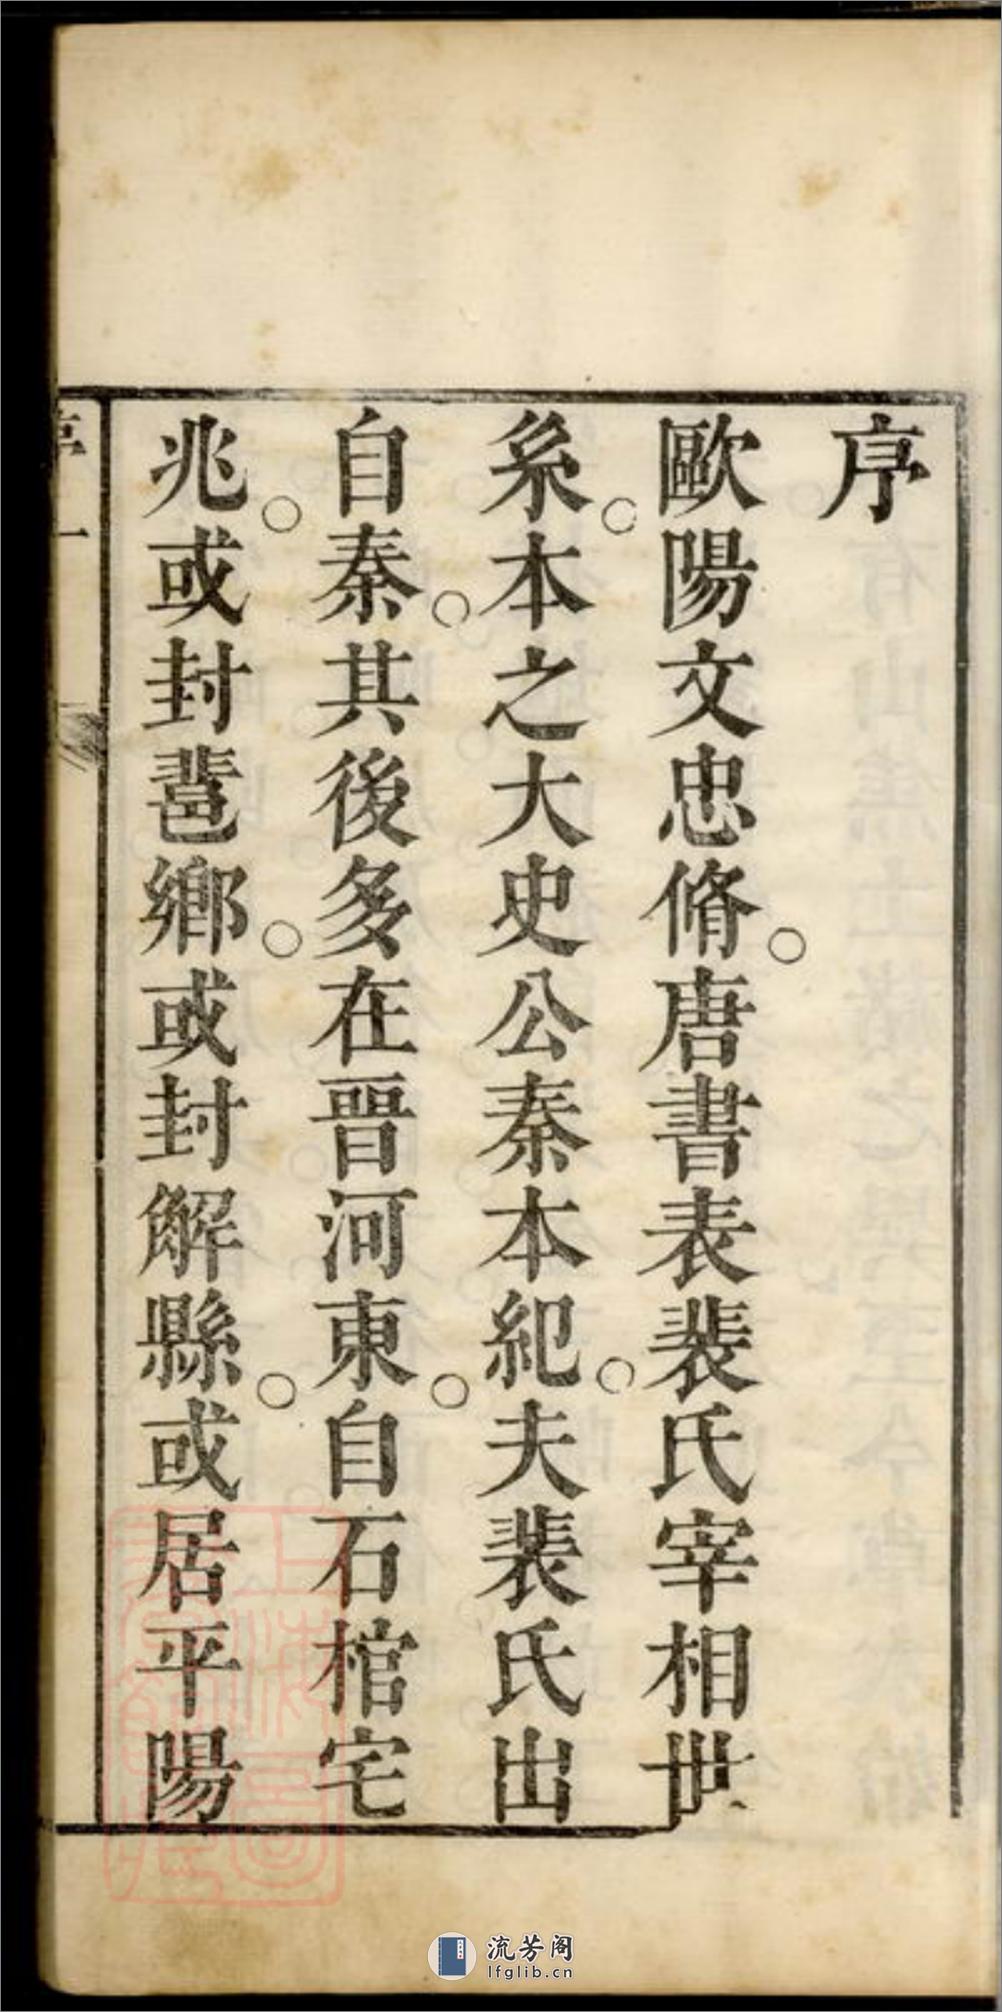 序
歐陽文忠脩。唐書表裴氏宰相世
系。本之大史公秦本紀。夫裴氏出
自秦。其後多在晉河東。自石棺宅
兆。或封𨛬鄉。或封解縣。或居平陽
序 一
上海圖書館藏
流芳阁
lfglib.cn